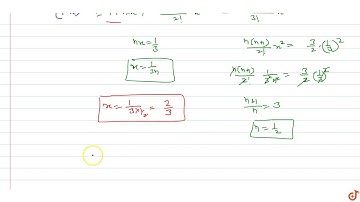 nx = 1/3
x = 1/3n
x = 1/(3×1/2) = 2/3
n(n+1)/2! x² = 3/2 · (1/3)²
n(n+1)/2! · 1/3²n² = 3/2 (1/3)²
n+1/n = 3
n = 1/2
doubtnut